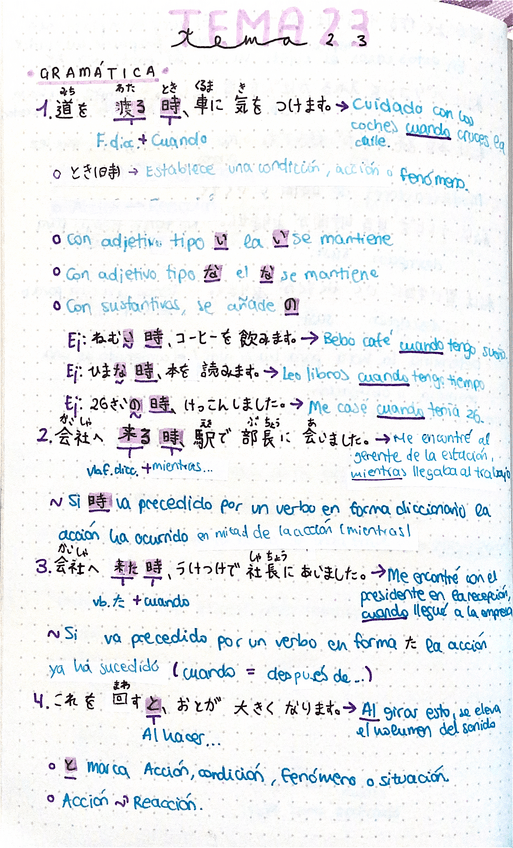 TEMA 23
tema 23
GRAMÁTICA
みち あた とき くるま き
1. 道を 渡る 時、車に 気を つけます。→ Cuidado con los
coches cuando cruces la
calle.
F. dic. + Cuando
o とき(時) → Establece una condición, acción o fenómeno.
o Con adjetivo tipo い la い se mantiene
o Con adjetivo tipo な el な se mantiene
o Con sustantivos, se añade の
Ej: ねむい 時、コーヒーを 飲みます。→ Bebo café cuando tengo sueño.
Ej: ひまな 時、本を 読みます。→ Leo libros cuando tengo tiempo
Ej: 26さいの 時、けっこんしました。→ Me casé cuando tenía 26.
かいしゃ えき ぶちょう あ
2. 会社へ 来る 時、駅で 部長に 会いました。→ Me encontré al
gerente de la estación,
mientras llegaba al trabajo
vb f. dicc. + mientras...
~ Si 時 va precedido por un verbo en forma diccionario la
acción ha ocurrido en mitad de la acción (mientras)
かいしゃ しゃちょう
3. 会社へ 来た 時、うけつけで 社長に あいました。→ Me encontré con el
presidente en la recepción,
cuando llegué a la empresa
vb. た + cuando
~ Si va precedido por un verbo en forma た la acción
ya ha sucedido (cuando = después de...)
まわ
4. これを 回すと、おとが 大きく なります。→ Al girar esto, se eleva
el volumen del sonido
Al hacer...
o と marca Acción, condición, fenómeno o situación.
o Acción ~ Reacción.